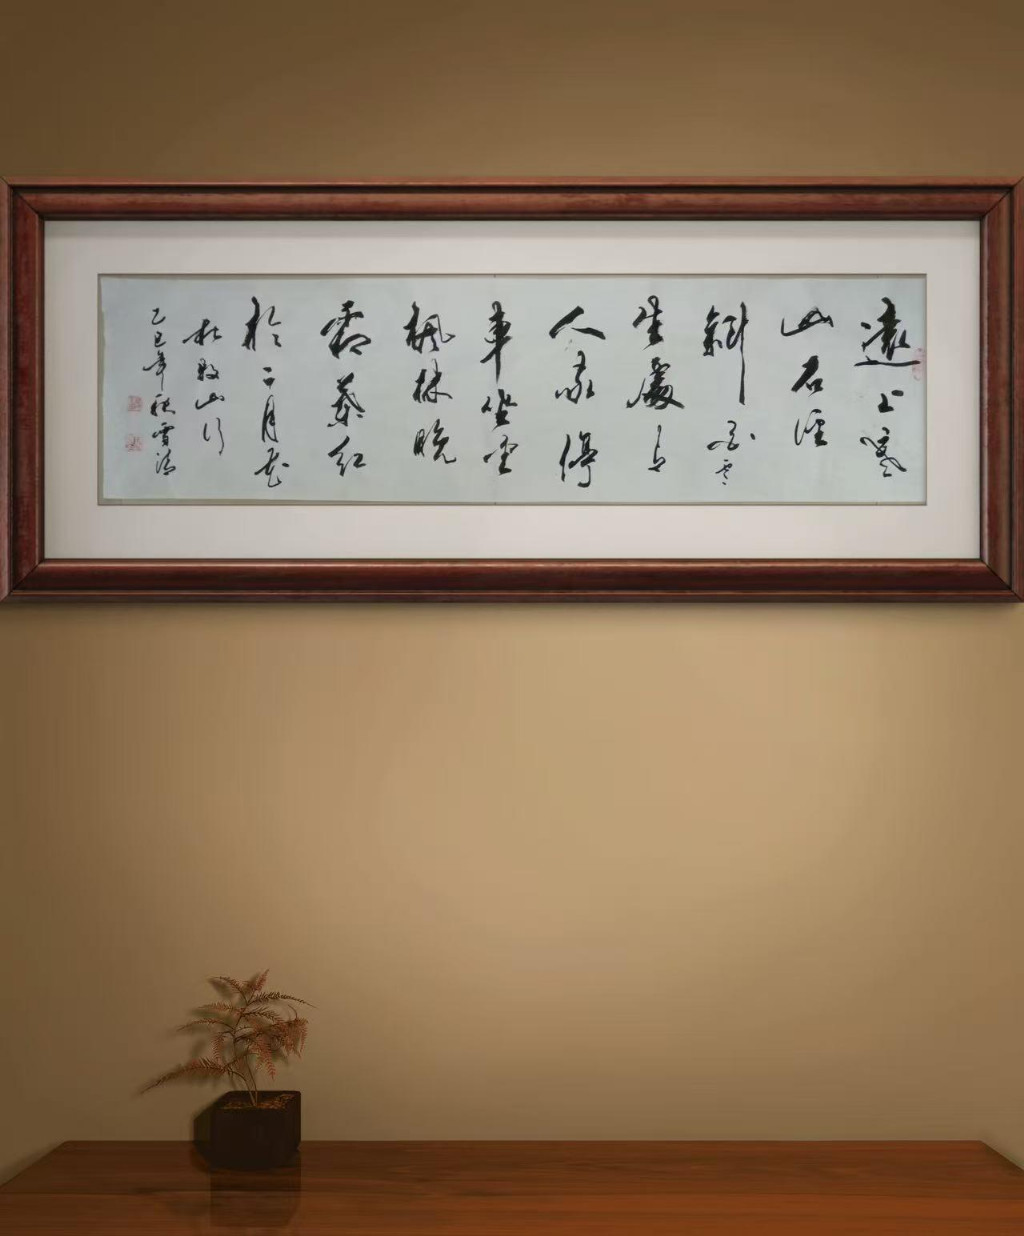 遠上寒
山石徑
斜白雲
生處有
人家停
車坐愛
楓林晚
霜葉紅
於二月花
杜牧山行
乙巳年秋雪